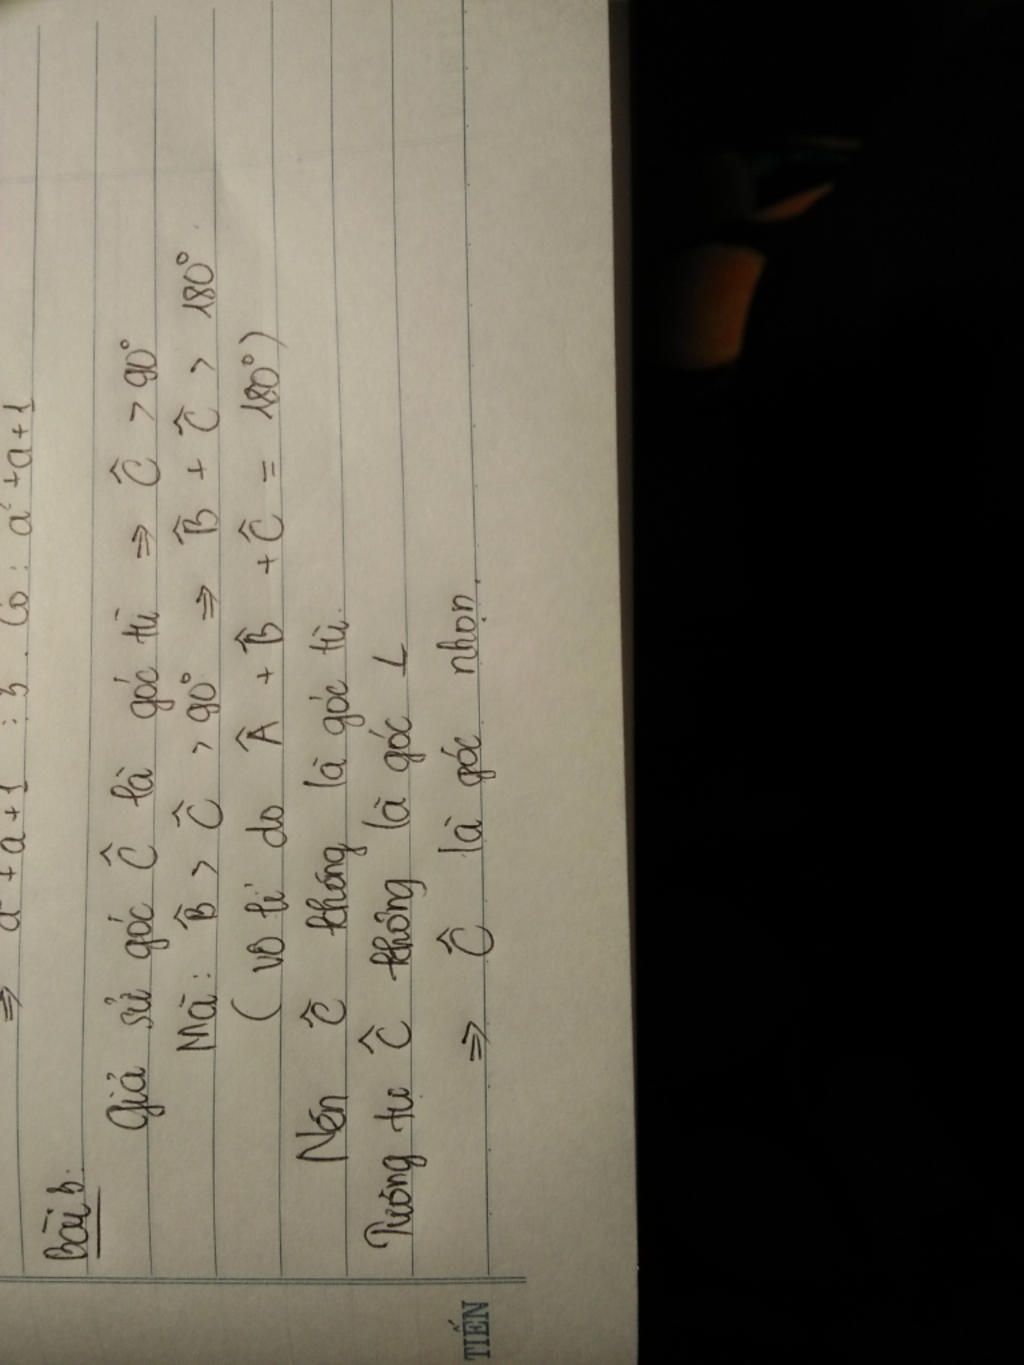 ⇒ a² + a + 1 ⋮ 3. Có: a² + a + 1
Bài 3:
Giả sử góc Ĉ là góc tù ⇒ Ĉ > 90°
Mà: B̂ > Ĉ > 90° ⇒ B̂ + Ĉ > 180°
(vô lí do Â + B̂ + Ĉ = 180°)
Nên Ĉ không là góc tù.
Tương tự Ĉ không là góc ⊥
⇒ Ĉ là góc nhọn.
TIẾN